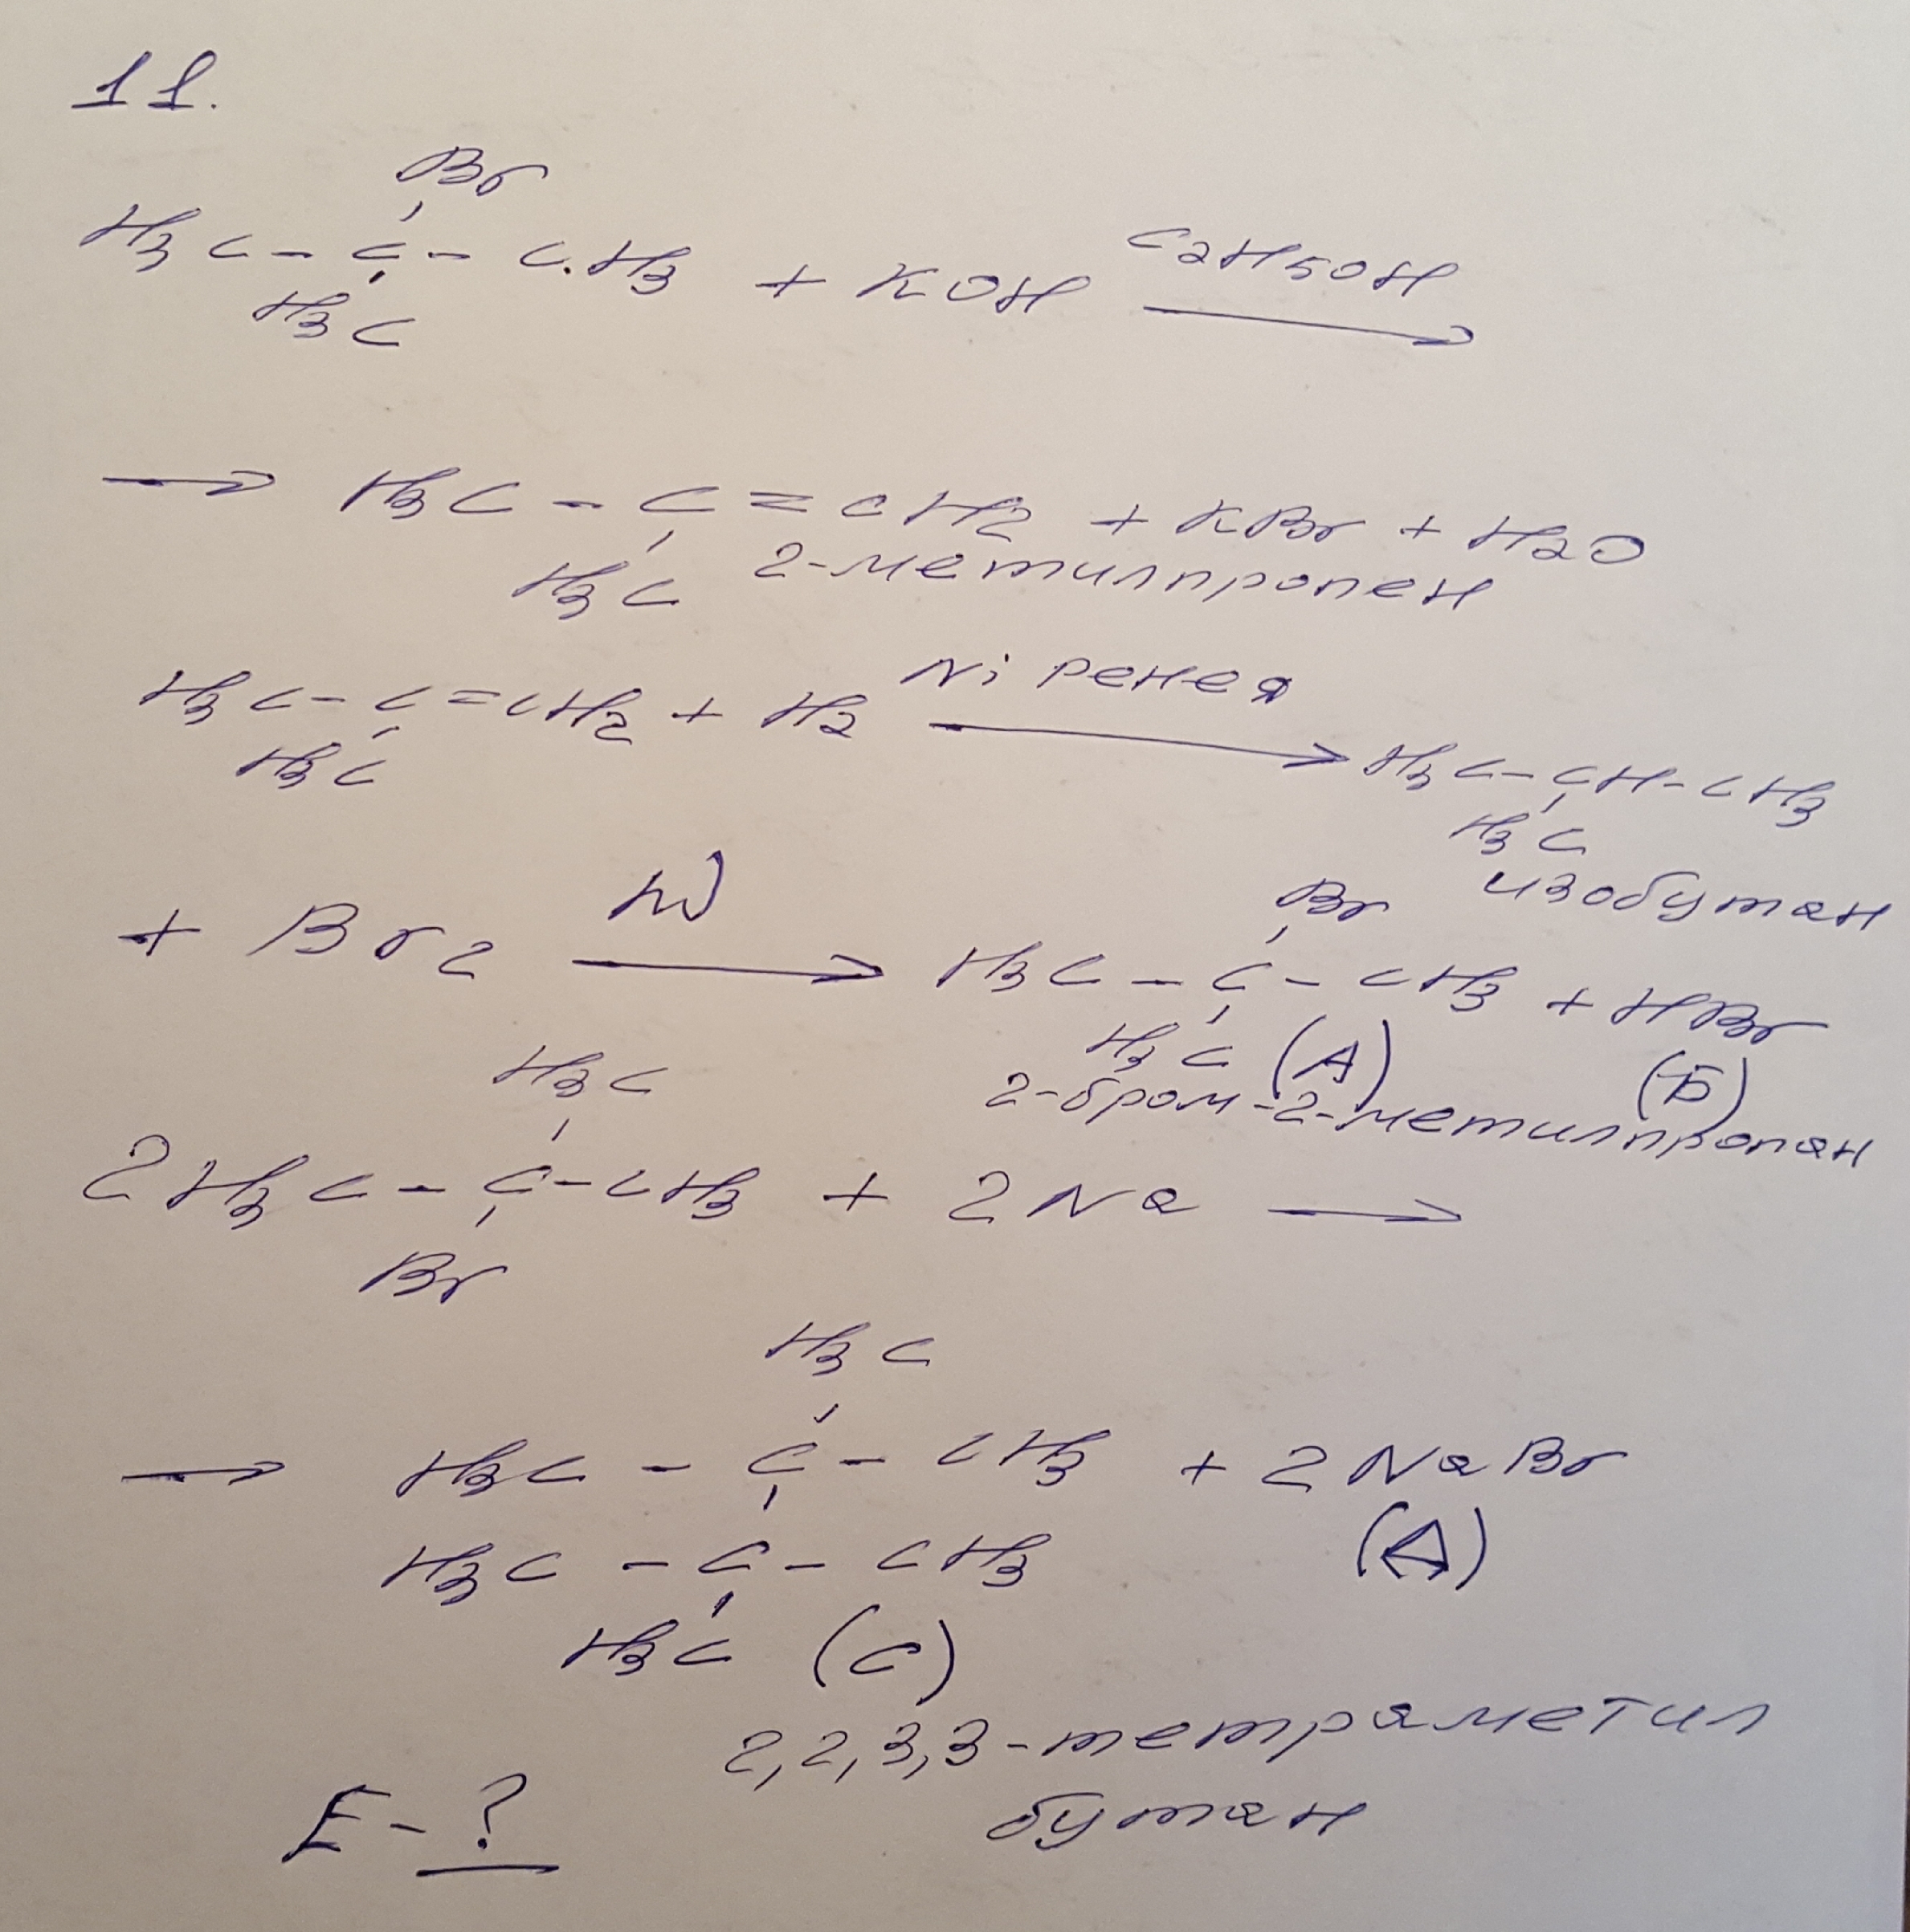 11.
Br
H3C - C - CH3 + KOH C2H5OH →
H3C
→ H3C - C = CH2 + KBr + H2O
H3C 2-метилпропен
H3C - C = CH2 + H2 Ni Ренея → H3C - CH - CH3
H3C H3C
изобутан
+ Br2 hν → H3C - C - CH3 + HBr
Br
H3C (А) (Б)
2-бром-2-метилпропан
H3C
2H3C - C - CH3 + 2Na →
Br
H3C
→ H3C - C - CH3 + 2NaBr
H3C - C - CH3 (Д)
H3C (С)
2,2,3,3-тетраметил
бутан
E - ?